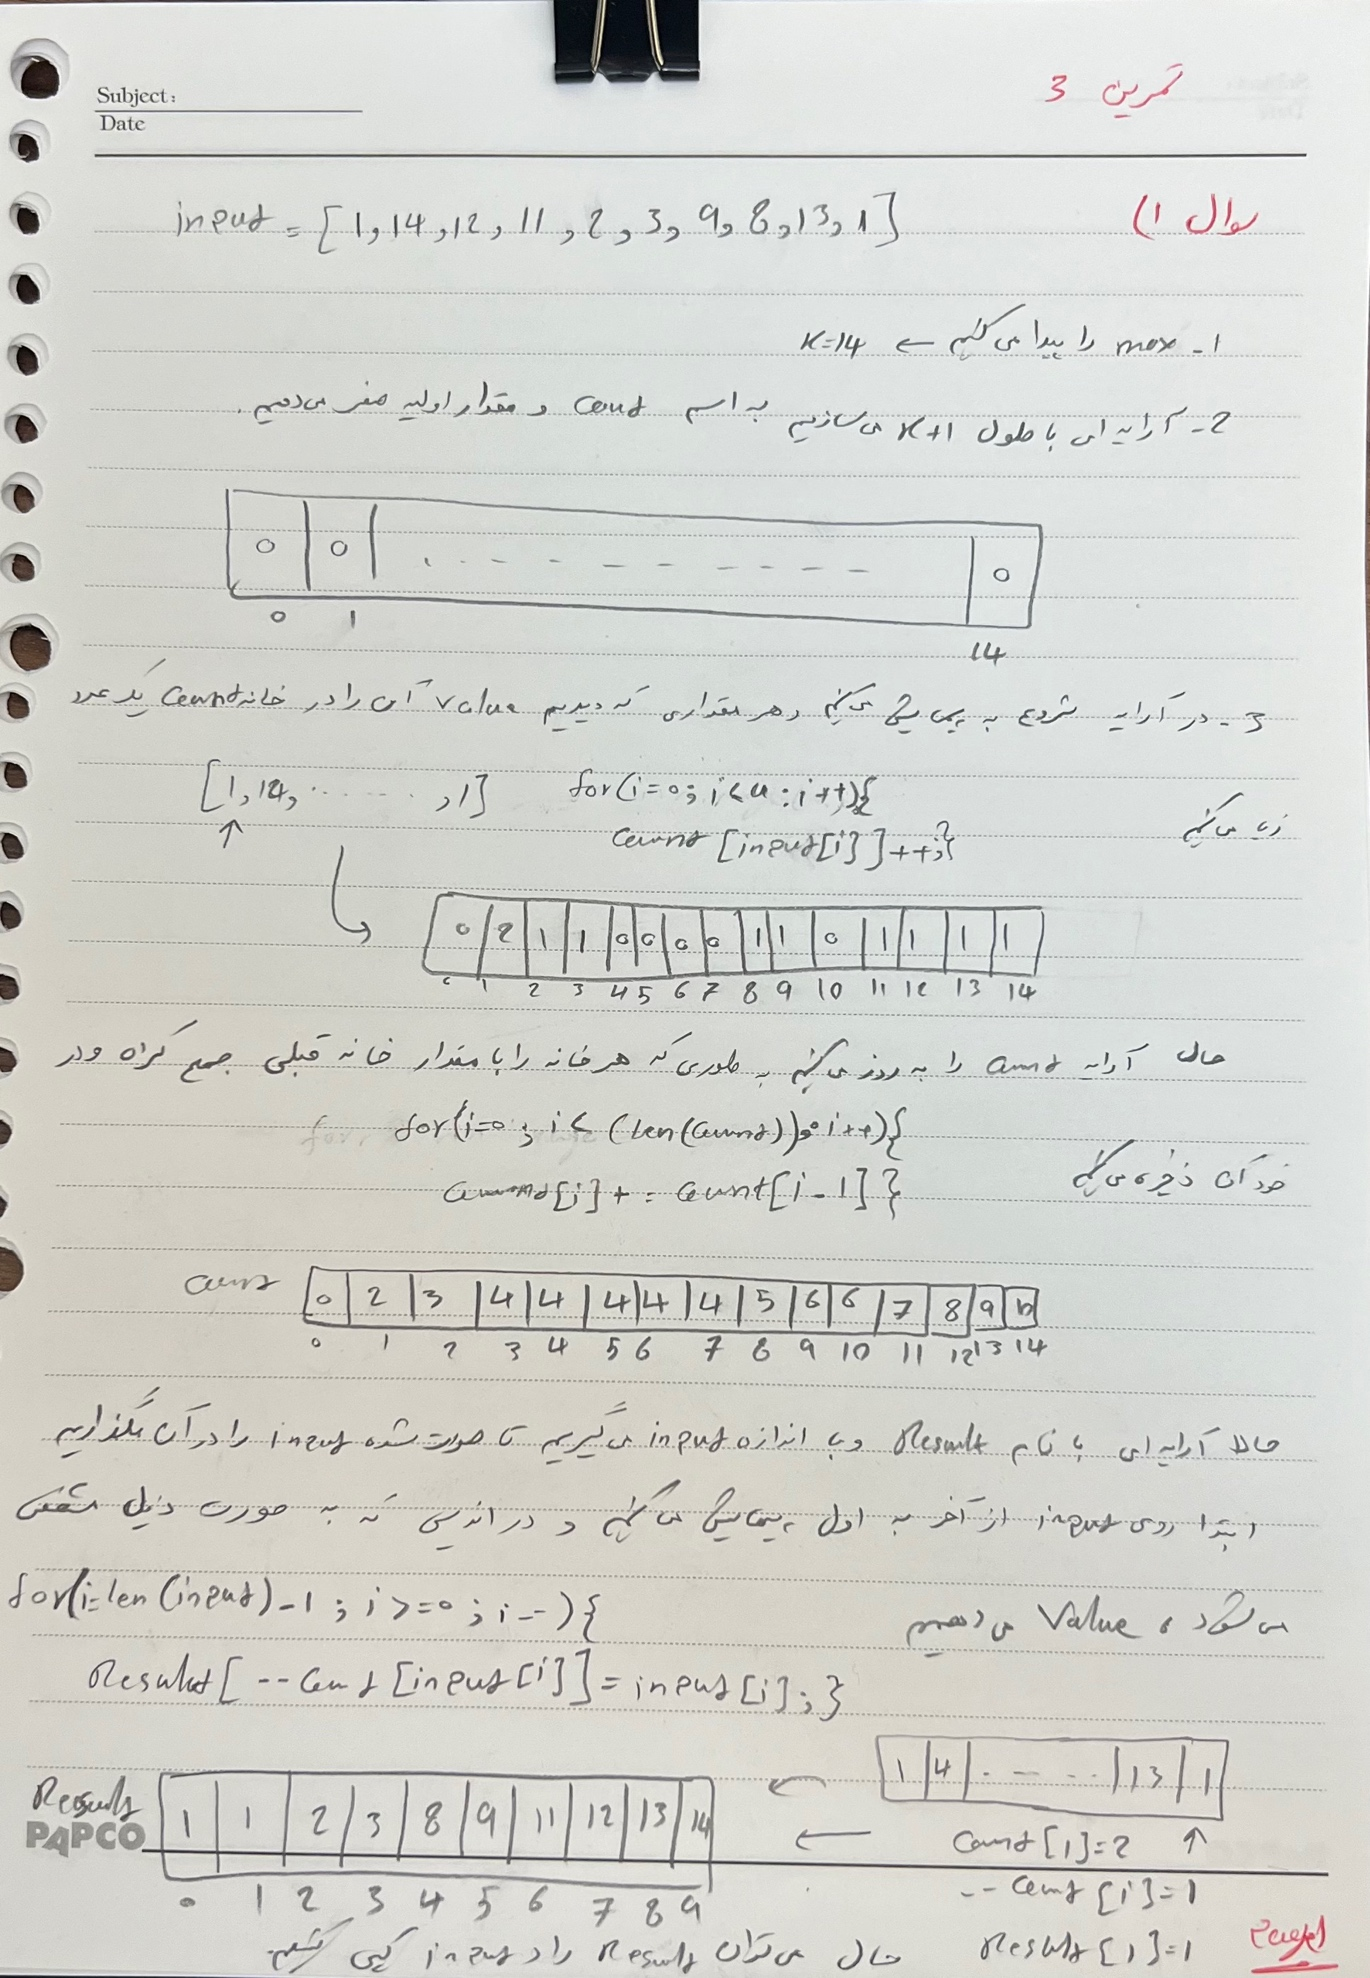 Subject:
Date
تمرین 3
سوال 1)
input = [1, 14, 12, 11, 2, 3, 9, 8, 13, 1]
1- max را پیدا می کنیم ← K=14
2- آرایه ای با طول K+1 می سازیم به اسم count و مقدار اولیه صفر می دهیم.
0 0 . - - - - - - - - - 0
0 1 14
3- در آرایه شروع به پیمایش می کنیم و هر مقداری که دیدیم value آن را در خانه count یک عدد
زیاد می کنیم
[1, 14, ....... , 1] for(i=0; i<n; i++){
count [input[i]]++;}
0 2 1 1 0 0 0 0 1 1 0 1 1 1 1
0 1 2 3 4 5 6 7 8 9 10 11 12 13 14
حال آرایه count را به روز می کنیم به طوری که هر خانه را با مقدار خانه قبلی جمع کرده و در
خود آن ذخیره می کنیم
for(i=0; i< (len(count)); i++){
count[i] += count[i-1] }
count 0 2 3 4 4 4 4 4 5 6 6 7 8 9 10
0 1 2 3 4 5 6 7 8 9 10 11 12 13 14
حالا آرایه ای با نام Result و با اندازه input می گیریم تا سورت شده input را در آن بگذاریم
ابتدا روی input از آخر به اول پیمایش می کنیم و در اندیسی که به صورت ذیل مشخص
می شود، value می دهیم
for(i=len(input)-1; i>=0; i--){
Result[ --count [input[i]] = input[i]; }
1 4 . - - . . 13 1
Result 1 1 2 3 8 9 11 12 13 14
0 1 2 3 4 5 6 7 8 9
PAPCO
count [1]=2
-- count [i]=1
Result [1]=1
حال می توان Result را در input کپی کنیم.